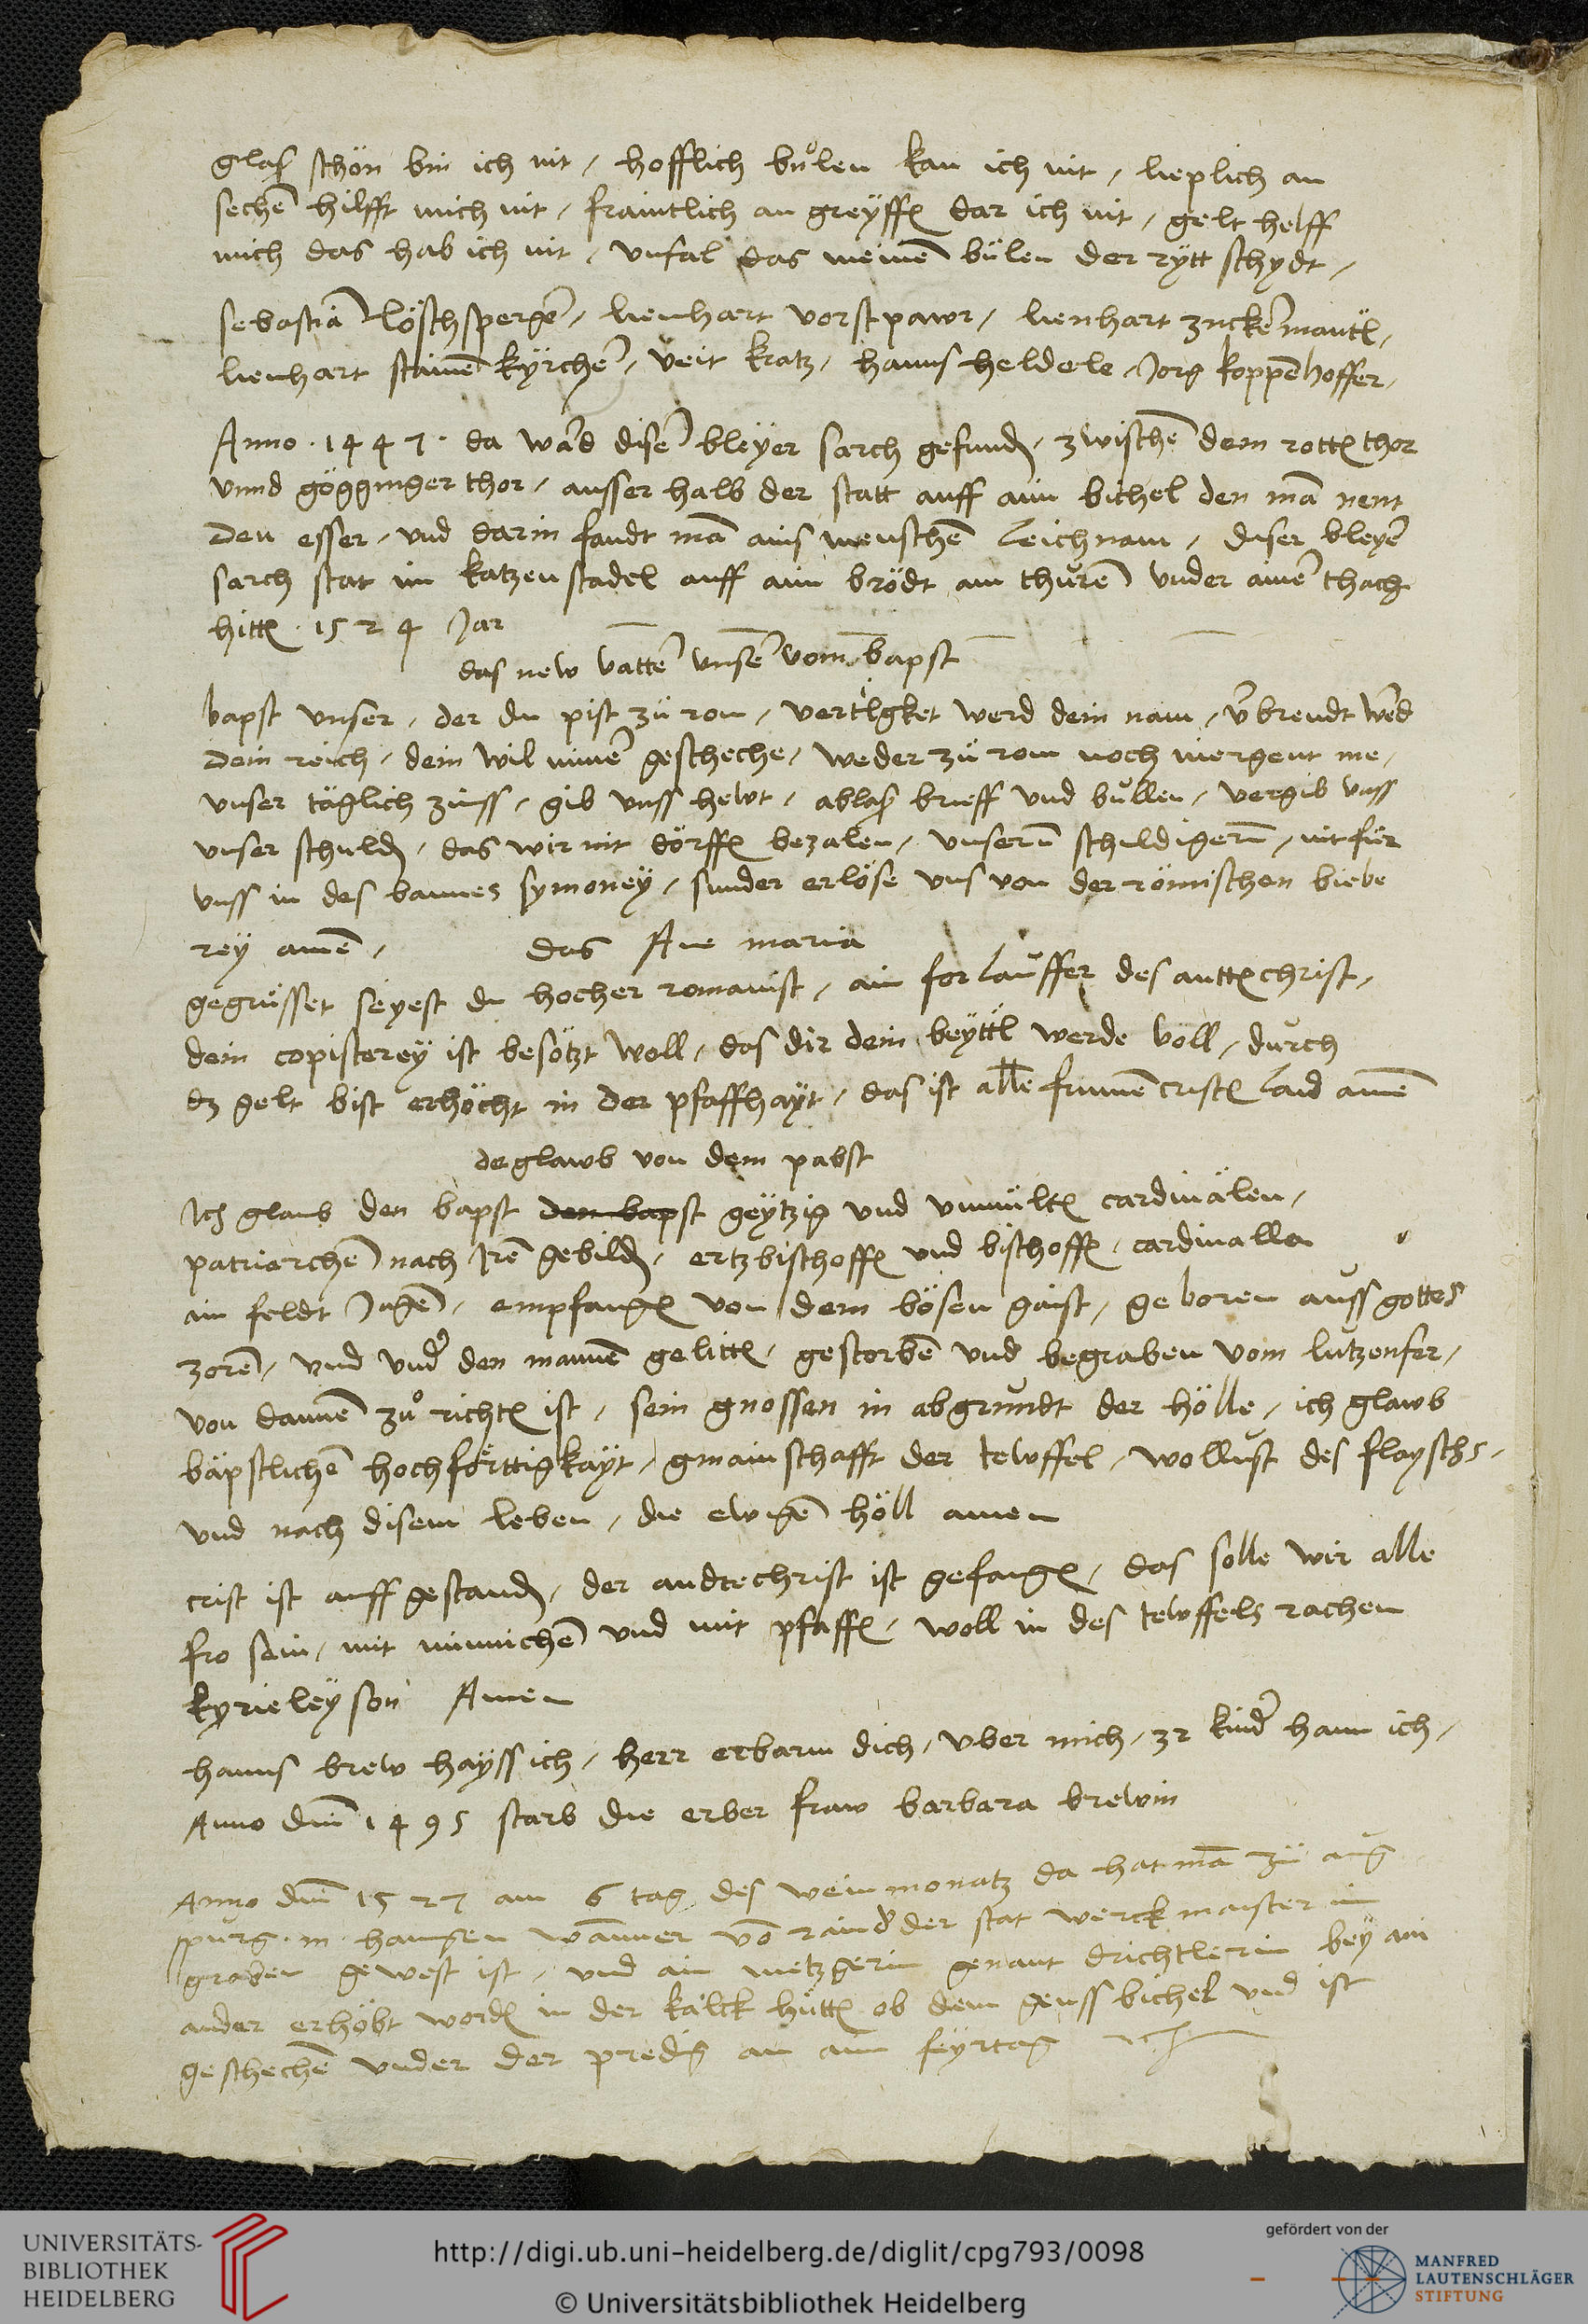 glaß schön bin ich nit / hofflich bůlen kan ich nit / lieplich an
sechen hilfft mich nit / fraintlich an greyffen dar ich nit / gelt helff
mich das hab ich nit / unfal das meinen bulen der rytt schydt /
sebastiā löschsperger / lienhart vorstpawr / lienhart zuckenmantel /
lienhart stainenkyrcher / veit kratz / hanns heldele / Jorg koppenhoffer /
Anno · 1447 · da ward diser bleyer sarch gefunden / zwischen dem rotten thor
unnd gögginger thor / ausser halb der statt auff aim bichel den mā nent
den esser / und darin fandt mā ains menschen leichnam / diser bleyer
sarch stat im katzenstadel auff aim brödt am thuren under ainer thach
hitten · 1524 Jar
das new vatter unser vom bapst
bapst unser / der du pist zu rom / vertilgket werd dein nam / verbrendt werd
dein reich / dein wil nimer gescheche / weder zu rom noch niergent me /
unser täglich zinss / gib unss hewt / ablaß brieff und bullen / vergib unss
unser schulden / das wir nit dörffen bezalen / unsern schuldigern / nit für
unss in des bannes symoney / sunder erlöse uns von der römischen biebe
rey amen / das Ave maria
gegrüsset seyest du hocher romanist / ain forlauffer des anttechrist /
dein copisterey ist besötzt woll / das dir dein beyttl werde voll / durch
dz gelt bist erhöcht in der pfaffhayt / das ist alle frumen cristen laid amen
der glawb von dem pabst
Ich glaub den bapst den bapst geytzig und unmilten cardinälen /
patriarchen nach Iren gebilden / ertzbischoffen und bischoffen / cardinalla
ain feldt Jager / empfangen von dem bösen gaist / geboren auss gottes
zoren / und under den mannen gelitten / gestorben und begraben vom lutzenfer /
von dannen zů richten ist / sein gnossen in abgrundt der hölle / ich glawb
bäpstlichen hochförttigkayt / gmainschafft der tewffel / wollust des flayschs /
und nach disem leben / die ewigen höll amen
crist ist auff gestanden / der andtechrist ist gefangen / das solle wir alle
fro sein / mit minnichen und mit pfaffen / woll in des tewffels rachen
kyrieleyson Amen
hanns brew hayss ich / herr erbarm dich / uber mich / 32 kinder hann ich /
Anno dm̄ 1495 starb die erber fraw barbara brewin
Anno dm̄ 1527 am 6 tag des weinmonatz da hat mā zu aug
spurg · m · hansen wanner vō raind der stat werckmaister im
graben gewest ist / und ain metzgerin genant drichtlerin bey ain
ander erhöbt worden in der kalck hütten ob dem genssbichel und ist
geschechen under der predig an aim feyrtag
UNIVERSITÄTS-
BIBLIOTHEK
HEIDELBERG
http://digi.ub.uni-heidelberg.de/diglit/cpg793/0098
© Universitätsbibliothek Heidelberg
gefördert von der
MANFRED
LAUTENSCHLÄGER
STIFTUNG